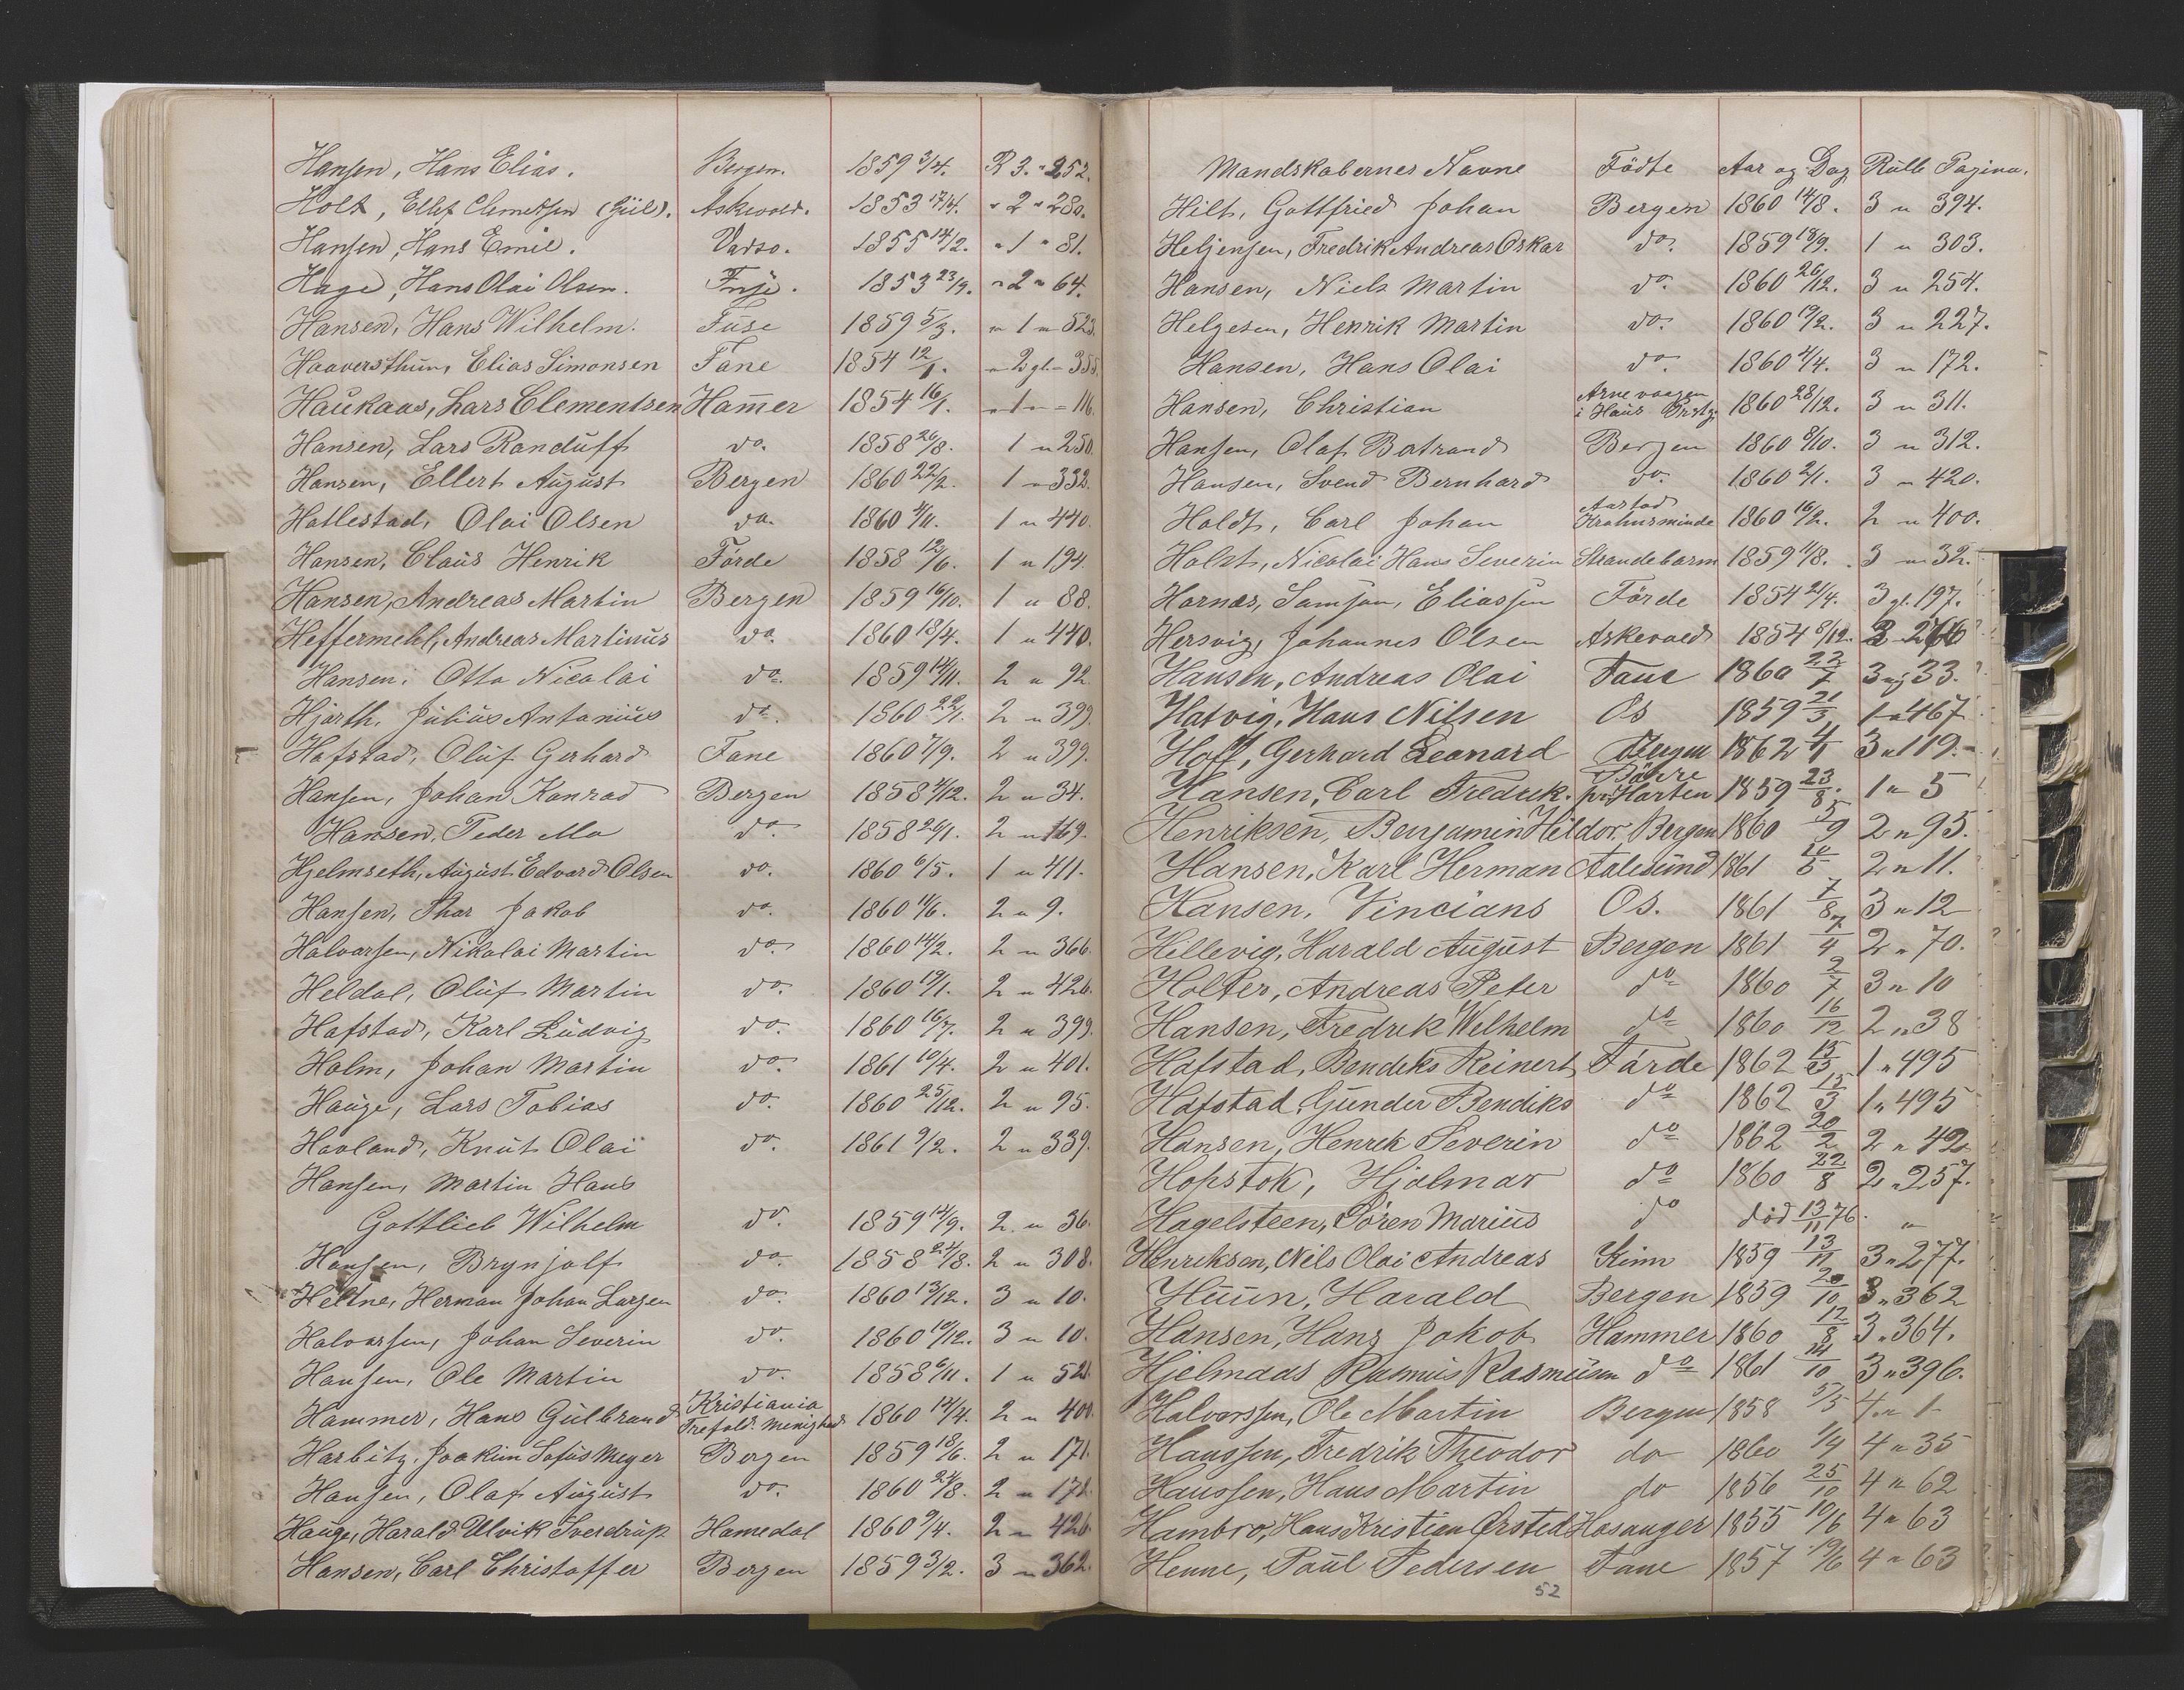 Hansen, Hans Elias. Bergen. 1859 3/4. R 3. " 252.
Holt, Ellef Clemetsen (Giil). Askvold. 1853 17/4. " 2 " 280.
Hansen, Hans Emil. Vadso. 1855 14/2. " 1 " 81.
Hage, Hans Olai Olsen. 1853 23/9. " 2 " 64.
Hansen, Hans Wilhelm. Fuse 1859 5/3. " 1 " 523.
Haaversthun, Elias Simonsen Fane 1854 12/1. " 2 gl. " 355.
Haukaas, Lars Clementsen Hamer 1854 16/1. " 1 " 116.
Hansen, Lars Randulff do. 1858 26/8. 1 " 250.
Hansen, Ellert August Bergen 1860 22/2. 1 " 332.
Hatlestad, Olai Olsen do. 1860 4/11. 1 " 440.
Hansen, Claus Henrik Förde 1858 12/6. 1 " 194.
Hansen, Andreas Martin Bergen 1859 16/10. 1 " 88.
Heffermehl, Andreas Martinus do. 1860 18/4. 1 " 440.
Hansen, Otto Nicolai do. 1859 14/11. 2 " 92.
Hjorth, Julius Antonius do. 1860 22/1. 2 " 399.
Hafstad, Oluf Gerhard Fane 1860 7/9. 2 " 399.
Hansen, Johan Konrad Bergen 1858 4/12. 2 " 34.
Hansen, Peder Mo do. 1858 26/1. 2 " 169.
Hjelmseth, August Edvard Olsen do. 1860 6/5. 1 " 411.
Hansen, Thor Jakob do. 1860 11/6. 2 " 9.
Halvorsen, Nikolai Martin do. 1860 14/2. 2 " 366.
Heldal, Oluf Martin do. 1860 19/1. 2 " 426.
Hafstad, Karl Ludvig do. 1860 16/7. 2 " 399.
Holm, Johan Martin do. 1861 10/4. 2 " 401.
Hauge, Lars Tobias do. 1860 25/12. 2 " 95.
Hovland, Knut Olai do. 1861 9/2. 2 " 339.
Hansen, Martin Hans
Gottlieb Wilhelm do. 1859 14/9. 2 " 36.
Hansen, Brynjolf do. 1858 24/8. 2 " 308.
Heltne, Herman Johan Larsen do. 1860 13/12. 3 " 10.
Halvorsen, Johan Severin do. 1860 10/12. 3 " 10.
Hansen, Ole Martin do. 1858 6/11. 1 " 52.
Hammer, Hans Gulbrand Kristiania Trefold. Menighed 1860 14/4. 2 " 400.
Harbitz, Joakim Sofus Meyer Bergen 1859 18/6. 2 " 171.
Hansen, Olaf August do. 1860 24/8. 2 " 178.
Hauge, Harald Ulvik Sverdrup Homedal 1860 9/4. 2 " 426.
Hansen, Carl Christoffer Bergen 1859 3/2. 3 " 362.
Mandskabernes Navne Födte Aar og Dag Rulle Pagina.
Hilt, Gottfried Johan Bergen 1860 14/8. 3 " 394.
Heljensen, Fredrik Andreas Oskar do. 1859 18/9. 1 " 303.
Hansen, Niels Martin do. 1860 26/12. 3 " 254.
Helgesen, Henrik Martin do. 1860 19/2. 3 " 227.
Hansen, Hans Olai do. 1860 4/4. 3 " 172.
Hansen, Christian Arnevaagen i Haus Prstg. 1860 28/12. 3 " 311.
Hansen, Olaf Bertrand Bergen 1860 8/10. 3 " 312.
Hansen, Svend Bernhard do. 1860 2/1. 3 " 420.
Holdt, Carl Johan Aarstad Krohnsminde 1860 16/2. 2 " 400.
Holst, Nicolai Hans Severin Strandebarm 1859 11/8. 3 " 32.
Hornæs, Samson, Eliassen Förde 1854 21/4. 3 gl. 197.
Hersvig, Johannes Olsen Askevold 1854 8/12. 2 " 266
Hansen, Andreas Olai Fane 1860 22/7 3 " 33.
Hatvig, Hans Nilsen Os 1859 21/3 1 " 467
Hoff, Gerhard Leonard Bergen 1862 4/1 3 " 119.
Hansen, Carl Fredrik. Borre pr. Horten 1859 23/8. 1 " 5
Henriksen, Benjamin Hildor. Bergen 1860 5/9 2 " 95.
Hansen, Karl Herman Aalesund 1861 10/5 2 " 11.
Hansen, Vincians Os. 1861 7/8 3 " 12
Hillevig, Harald August Bergen 1861 7/4 2 " 70.
Holter, Andreas Peter do 1860 2/7 3 " 10
Hansen, Fredrik Wilhelm do 1860 16/12 2 " 38
Hafstad, Bendiks Reinert Førde 1862 15/3 1 " 495
Hafstad, Gunder Bendiks do 1862 15/3 1 " 495
Hansen, Henrik Severin do 1862 20/2 2 " 42
Hopstok, Hjalmar do 1860 22/8 2 " 257.
Hagelsteen, Sören Marius do död 13/11 76. "
Henriksen, Nils Olai Andreas Kinn 1859 13/11 3 " 277.
Huun, Harald Bergen 1859 20/10 3 " 362
Hansen, Hans Jakob Hammer 1860 12/8 3 " 364.
Hjelmaas Rasmus Rasmusen do 1861 14/10 3 " 396.
Halvorssen, Ole Martin Bergen 1858 5/5 4 " 1
Hanssen, Fredrik Theodor do 1860 1/9 4 " 35
Hanssen, Hans Martin do 1856 25/10 4 " 62
Hambro, Hans Kristian Ørsted Hosanger 1855 10/6 4 " 63
Henne, Paul Pedersen Fane 1857 19/6 4 " 63
52
J
K